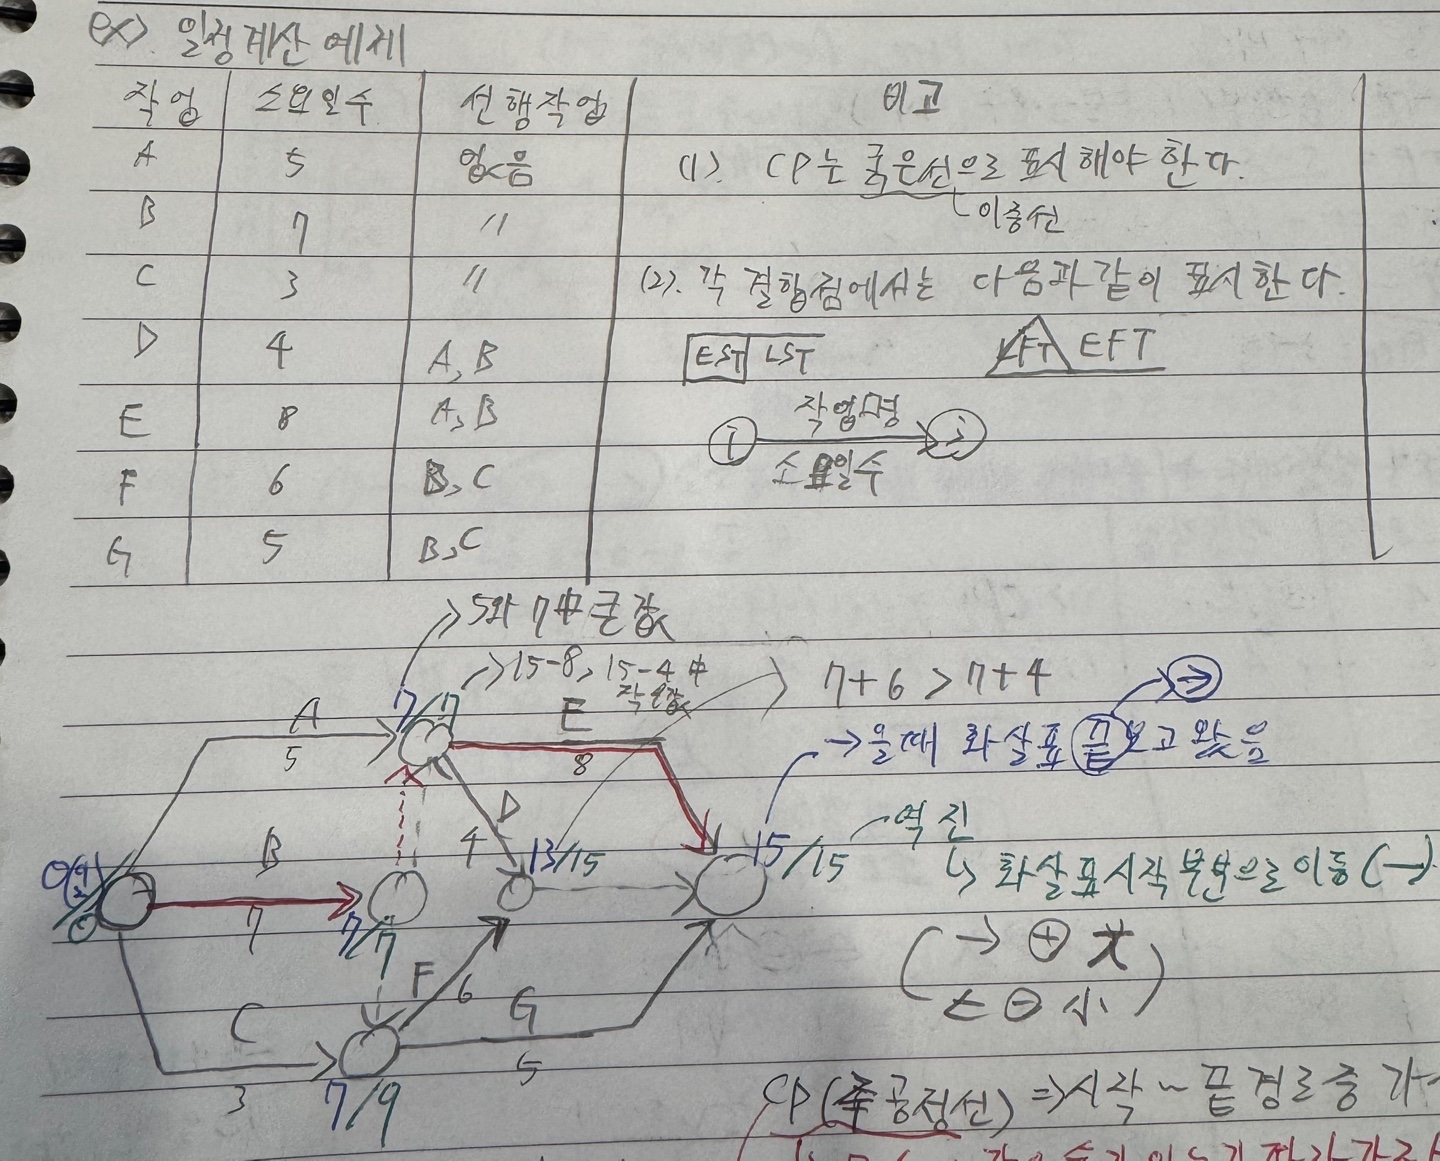 ex). 일정계산 예제
작업 소요일수 선행작업 비고
A 5 없음 (1). CP는 굵은선으로 표시해야 한다.
이중선
B 7 〃
C 3 〃 (2). 각 결합점에서는 다음과 같이 표시한다.
D 4 A, B EST LST LFT EFT
E 8 A, B 작업명
i j
F 6 B, C 소요일수
G 5 B, C
5와 7中 큰 값
15-8, 15-4 中
작은값
7+6 > 7+4
A 7/7 E
→ 올때 화살표 끝보고 왔음
5 8
D
역진
B 4 13/15 15/15
↳ 화살표 시작 부분으로 이동 (→)
0
0
7 7/7
F 6 → ⊕ 大
C G ← ⊖ 小
3 7/9 5
CP(주공정선) ⇒ 시작 ~ 끝 경로 중 가